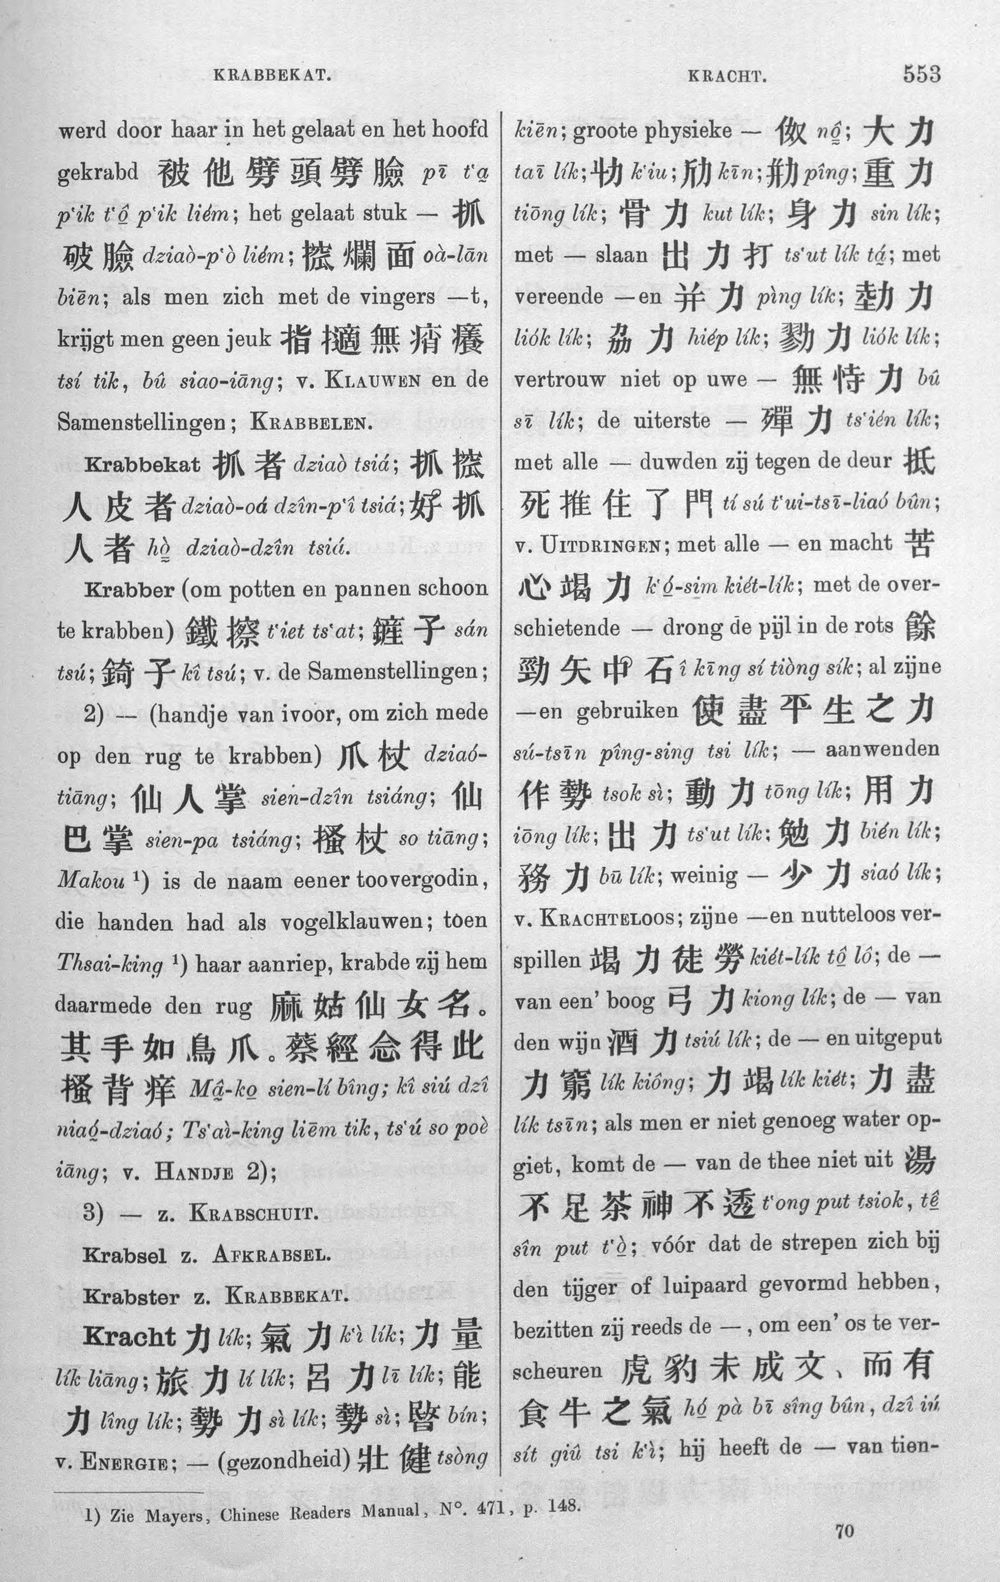 KRABBEKAT.
KRACHT.
553
werd door haar in het gelaat en het hoofd
gekrabd 被他劈頭劈臉 pī t'a̤
p'ik t'ô̤ p'ik liém; het gelaat stuk — 抓
破臉 dziaò-p'ò liém; 㧻爛面 oà-lān
biēn; als men zich met de vingers —t,
krijgt men geen jeuk 指擿無痟癢
tsí tik, bû siao-iāng; v. KLAUWEN en de
Samenstellingen; KRABBELEN.
Krabbekat 抓者 dziaò tsiá; 抓
人皮者 dziaò-oá dzîn-p'î tsiá; 好抓
人者 hò̤ dziaò-dzîn tsiá.
Krabber (om potten en pannen schoon
te krabben) 鐵擦 t'iet ts'at; 子 sán
tsú; 錡子 kî tsú; v. de Samenstellingen;
2) — (handje van ivoor, om zich mede
op den rug te krabben) 爪杖 dziaó-
tiāng; 仙人掌 sien-dzîn tsiáng; 仙
巴掌 sien-pa tsiáng; 搔杖 so tiāng;
Makou ¹) is de naam eener toovergodin,
die handen had als vogelklauwen; toen
Thsai-king ¹) haar aanriep, krabde zij hem
daarmede den rug 麻姑仙女名。
其手如鳥爪。蔡經念得此
搔背痒 Mâ̤-ko̤ sien-lí bîng; kî siú dzî
niaó̤-dziaó; Ts'aì-king liēm tik, ts'ú so poè
iāng; v. HANDJE 2);
3) — z. KRABSCHUIT.
Krabsel z. AFKRABSEL.
Krabster z. KRABBEKAT.
Kracht 力 lík; 氣力 k'ì lík; 力量
lík liāng; 旅力 lí lík; 呂力 lī lík; 能
力 lîng lík; 勢力 sì lík; 勢 sì; 暋 bín;
v. ENERGIE; — (gezondheid) 壯健 tsòng
kiēn; groote physieke — 伮 nô̤; 大力
taī lík; k'iu; kīn; pîng; 重力
tiōng lík; 骨力 kut lík; 身力 sin lík;
met — slaan 出力打 ts'ut lík tá̤; met
vereende —en 并力 pìng lík; 力
liók lík; 劦力 hiép lík; 勠力 liók lík;
vertrouw niet op uwe — 無恃力 bû
sī lík; de uiterste — 殫力 ts'ién lík;
met alle — duwden zij tegen de deur 抵
死推住了門 tí sú t'ui-tsī-liaó bûn;
v. UITDRINGEN; met alle — en macht 苦
心竭力 k'ó̤-sim kiét-lík; met de over-
schietende — drong de pijl in de rots 餘
勁矢中石 î kīng sí tiòng sík; al zijne
—en gebruiken 使盡平生之力
sú-tsīn pîng-sing tsi lík; — aanwenden
作勢 tsok sì; 動力 tōng lík; 用力
iōng lík; 出力 ts'ut lík; 勉力 bién lík;
務力 bū lík; weinig — 少力 siaó lík;
v. KRACHTELOOS; zijne —en nutteloos ver-
spillen 竭力徒勞 kiét-lík tô̤ lô; de —
van een' boog 弓力 kiong lík; de — van
den wijn 酒力 tsiú lík; de — en uitgeput
力窮 lík kiông; 力竭 lík kiét; 力盡
lík tsīn; als men er niet genoeg water op-
giet, komt de — van de thee niet uit 湯
不足茶神不透 t'ong put tsiok, tê̤
sîn put t'ò̤; vóór dat de strepen zich bij
den tijger of luipaard gevormd hebben,
bezitten zij reeds de —, om een' os te ver-
scheuren 虎豹未成文、而有
食牛之氣 hó̤ pà bī sîng bûn, dzî iú
sít giû tsi k'ì; hij heeft de — van tien-
1) Zie Mayers, Chinese Readers Manual, N°. 471, p. 148.
70